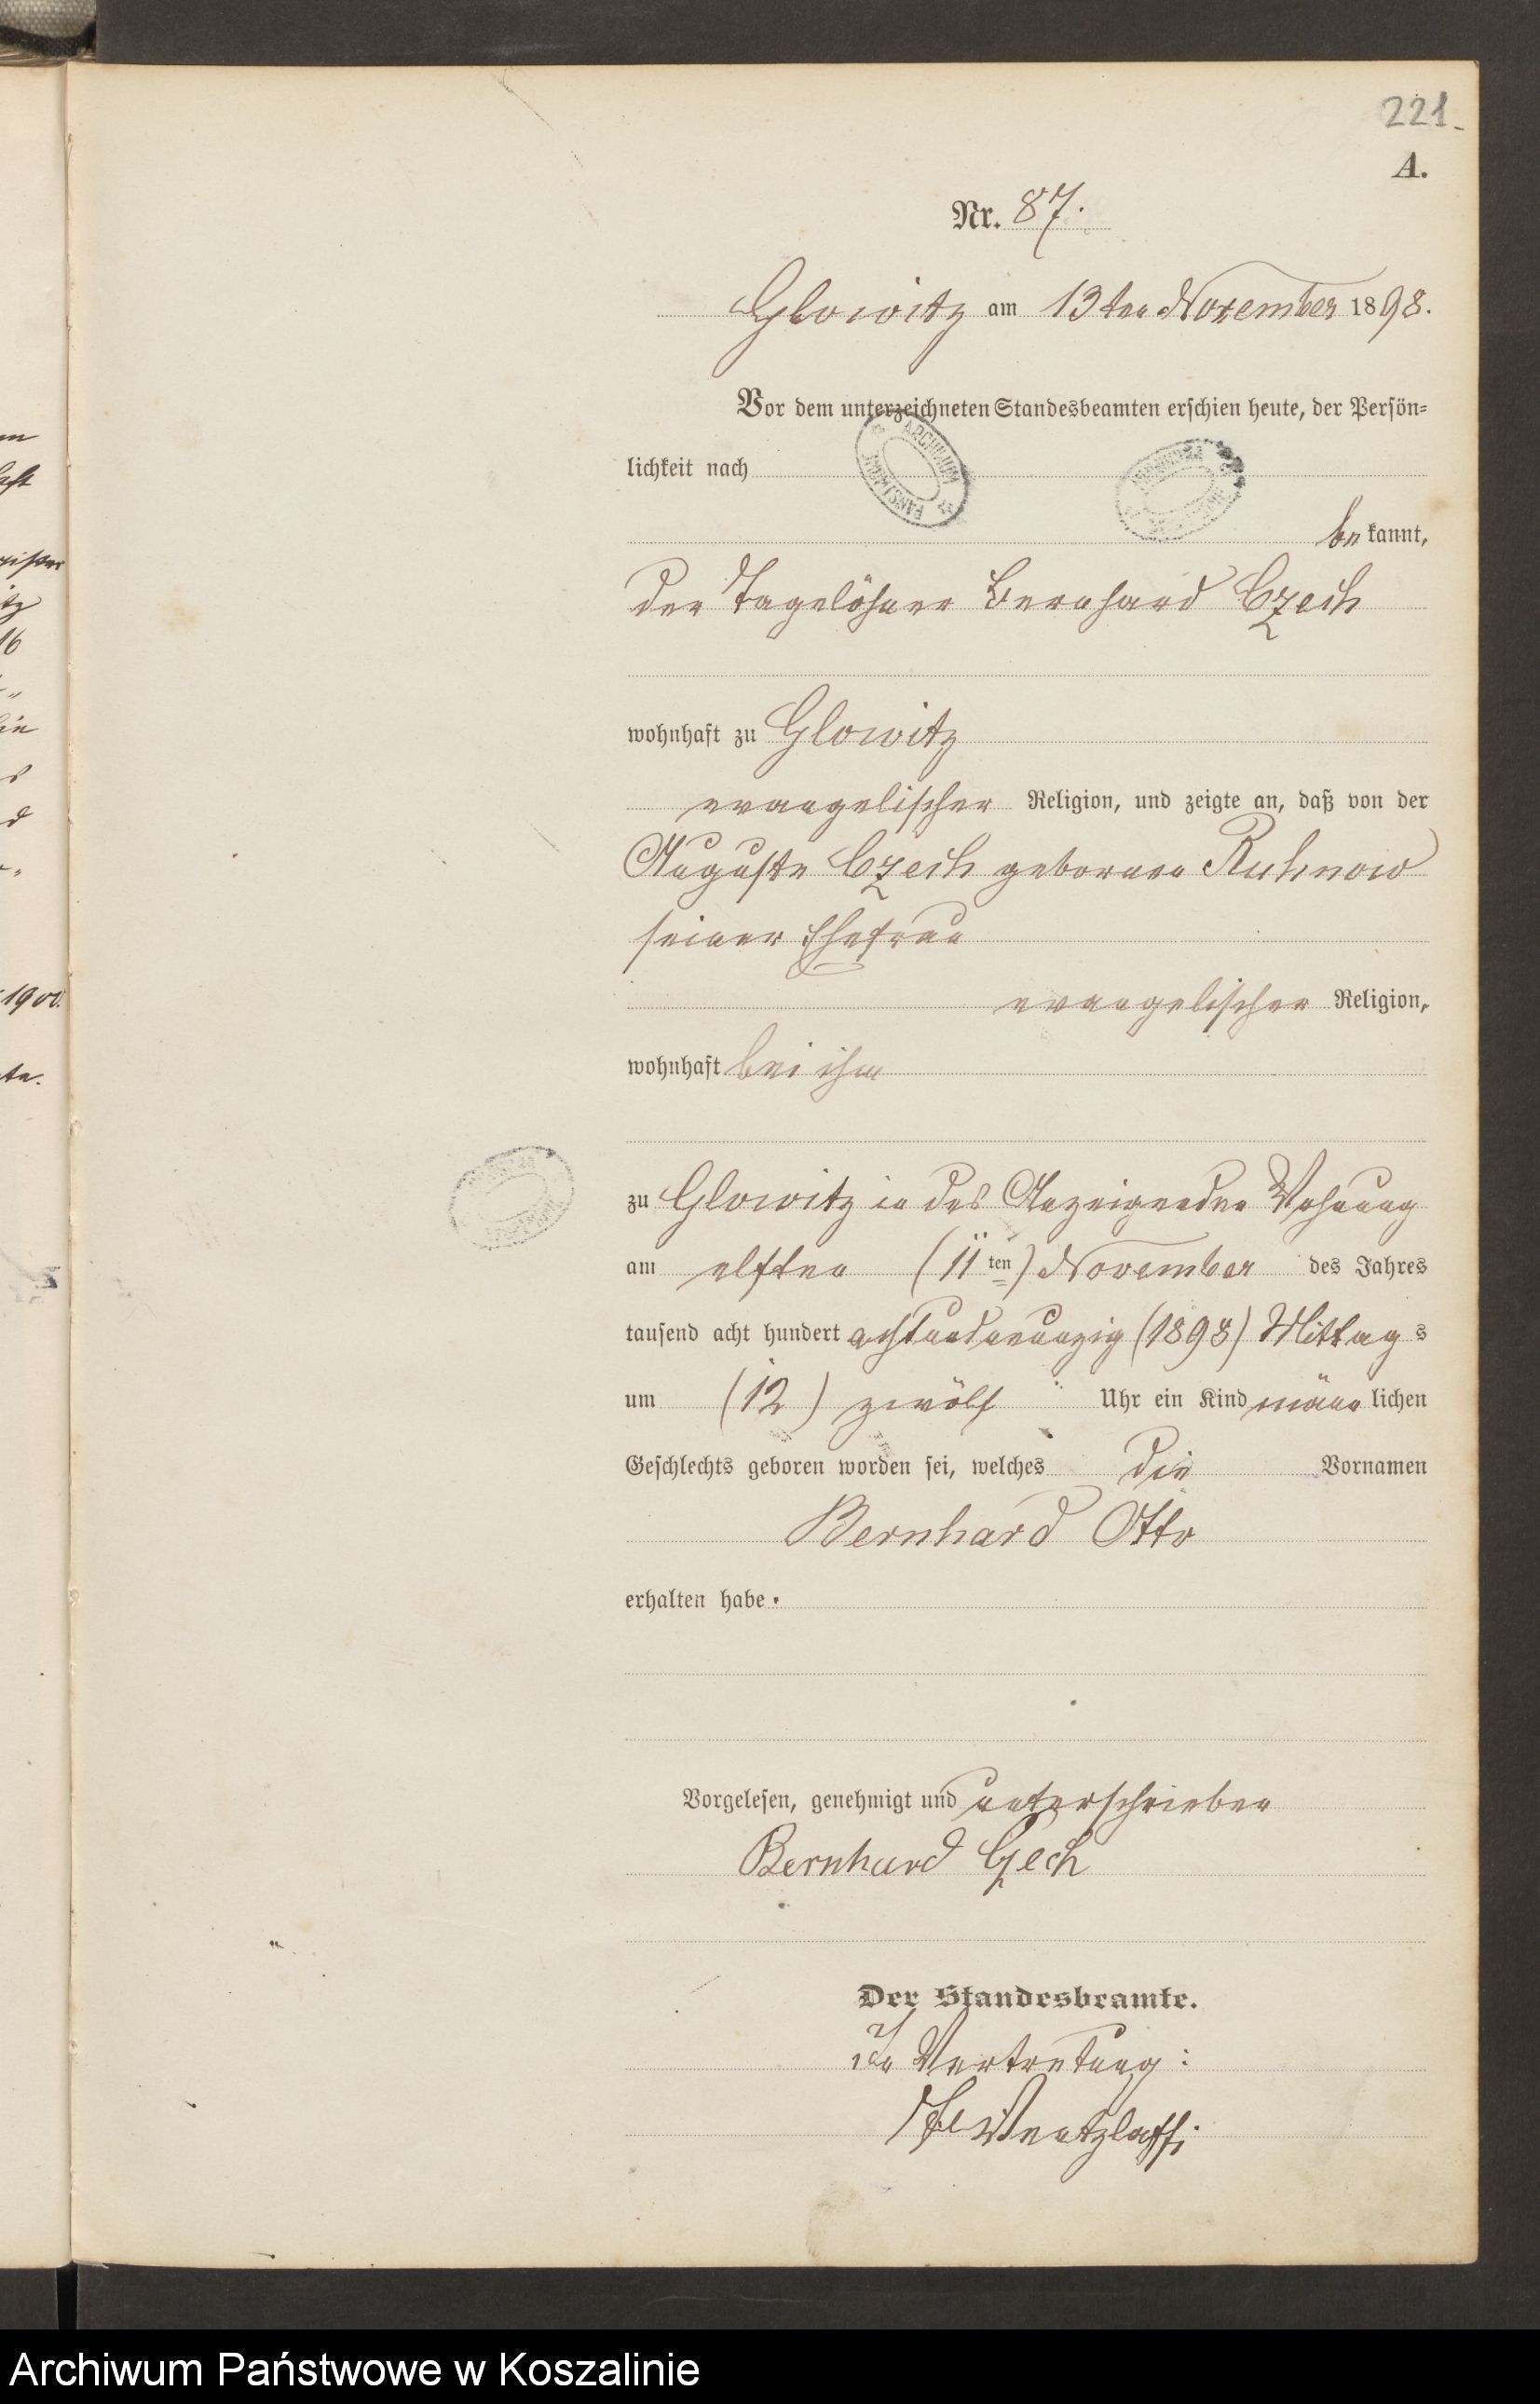 221
A.
Nr. 87.
Glowitz am 13ten November 1898.
Vor dem unterzeichneten Standesbeamten erschien heute, der Persön=
lichkeit nach
ARCHIWUM
be kannt,
der Tagelöhner Bernhard Czech
wohnhaft zu Glowitz
evangelischer Religion, und zeigte an, daß von der
Auguste Czech geborenen Ruhnow
seiner Ehefrau
evangelischer Religion,
wohnhaft bei ihm
zu Glowitz in des Anzeigenden Wohnung
am elften (11ten) November des Jahres
tausend acht hundert achtundneunzig (1898) Mittag s
um (12) zwölf Uhr ein Kind männ lichen
Geschlechts geboren worden sei, welches die Vornamen
Bernhard Otto
erhalten habe.
Vorgelesen, genehmigt und unterschrieben
Bernhard Czech
Der Standesbeamte.
In Vertretung:
Wentzlaff
1900.
16
Archiwum Państwowe w Koszalinie